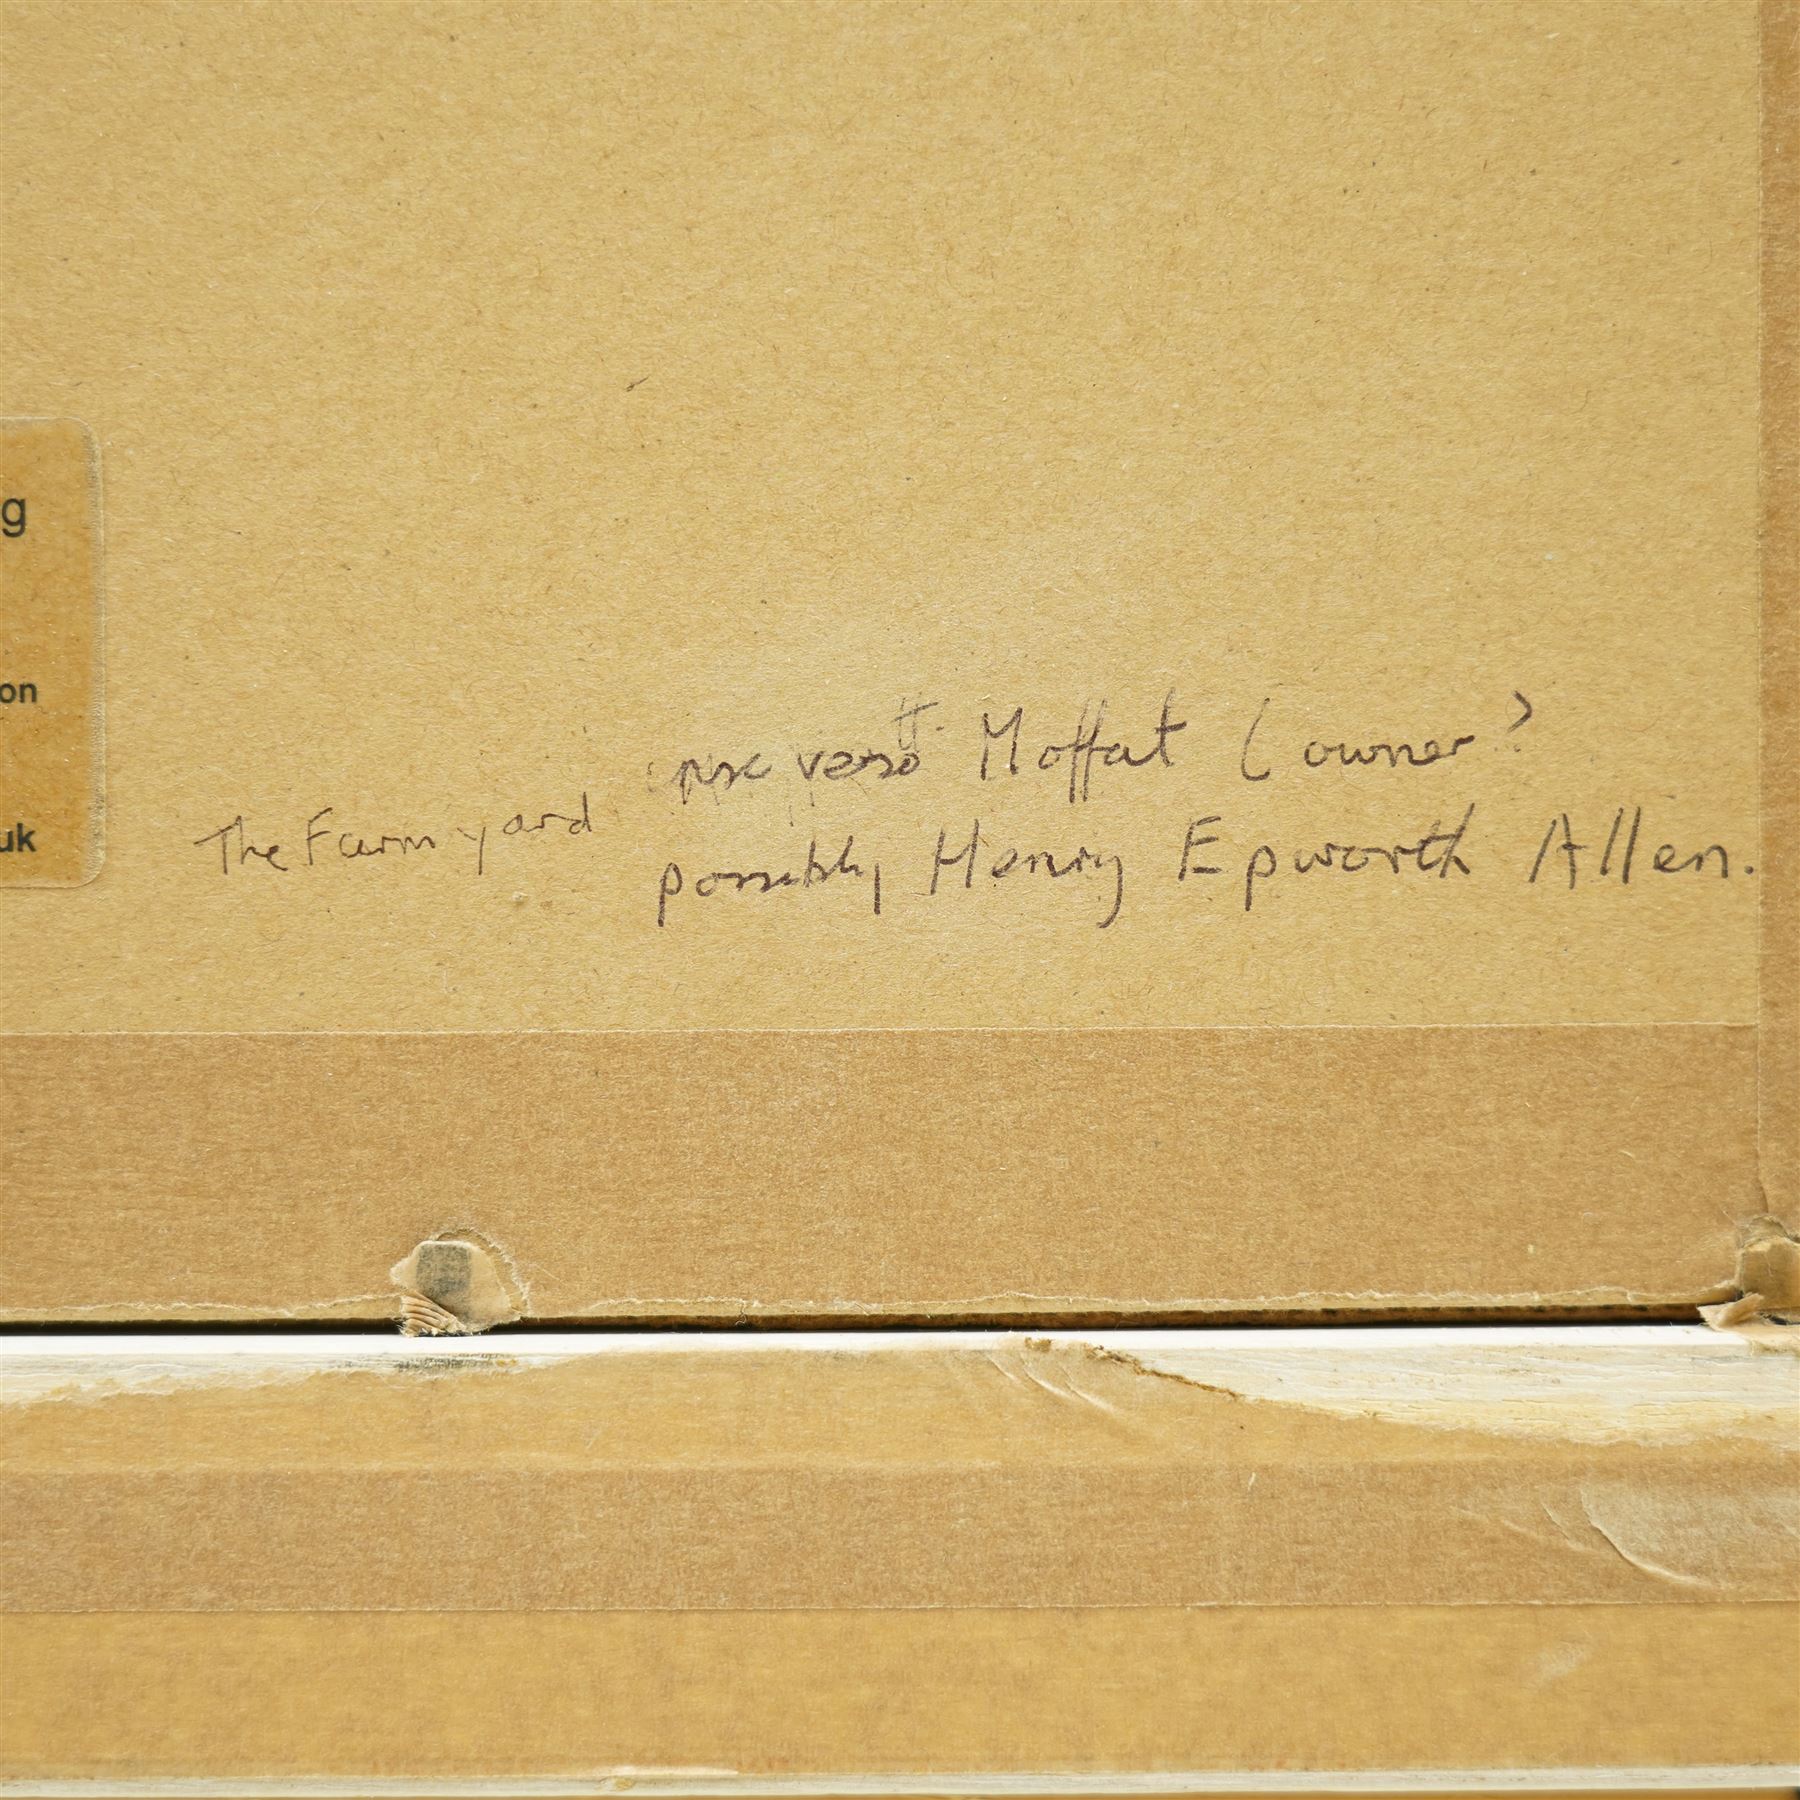 g
on
uk
verso Moffat (owner?
The Farm yard
possibly Henry Epworth Allen.